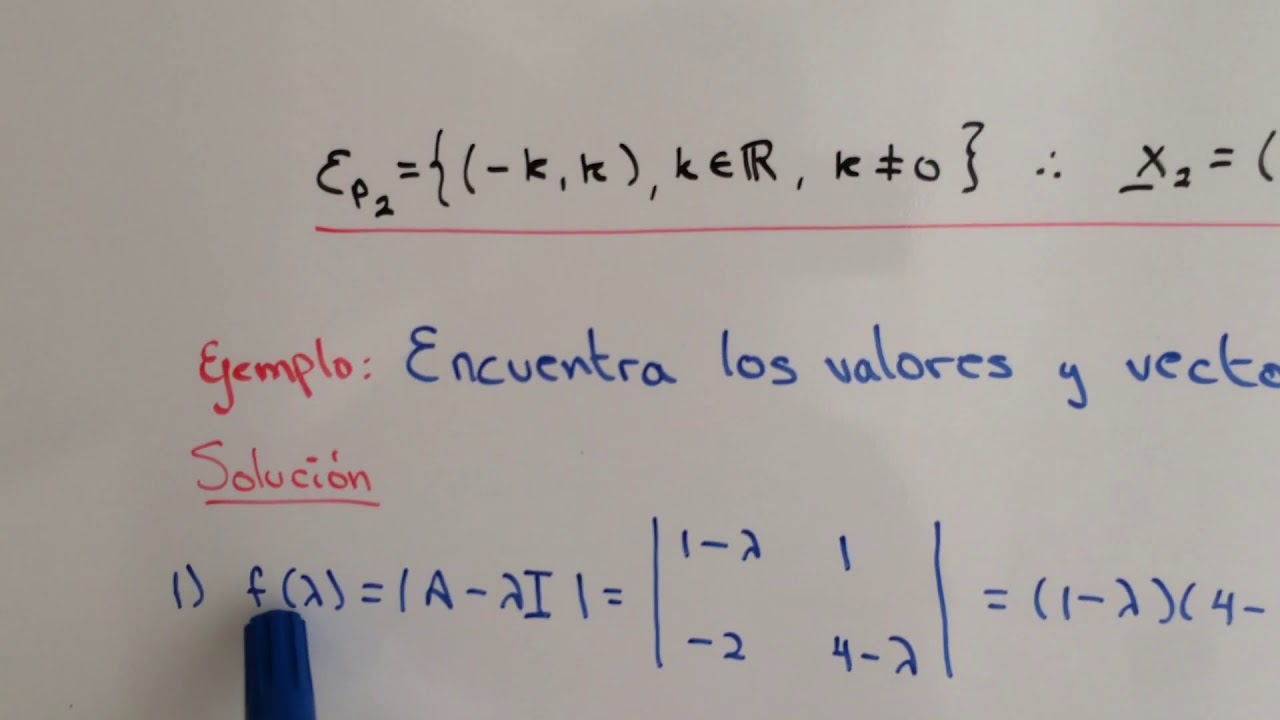 ℰp₂ = {(-k, k), k ∈ ℝ, k ≠ 0} ∴ x₂ = (
Ejemplo: Encuentra los valores y vecto
Solución
1) f(λ) = |A - λI| = | 1-λ 1 | = (1-λ)(4-
| -2 4-λ |